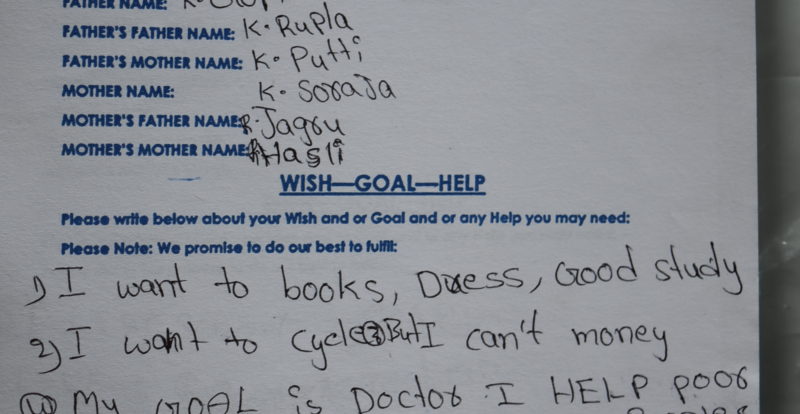 FATHER NAME: K.
FATHER'S FATHER NAME: K. Rupla
FATHER'S MOTHER NAME: K. Putti
MOTHER NAME: K. Soroja
MOTHER'S FATHER NAME: R. Jagru
MOTHER'S MOTHER NAME: Hasli
WISH—GOAL—HELP
Please write below about your Wish and or Goal and or any Help you may need:
Please Note: We promise to do our best to fulfil:
1) I want to books, Dress, Good study
2) I want to cycle But I can't money
My GOAL is Doctor I HELP poor